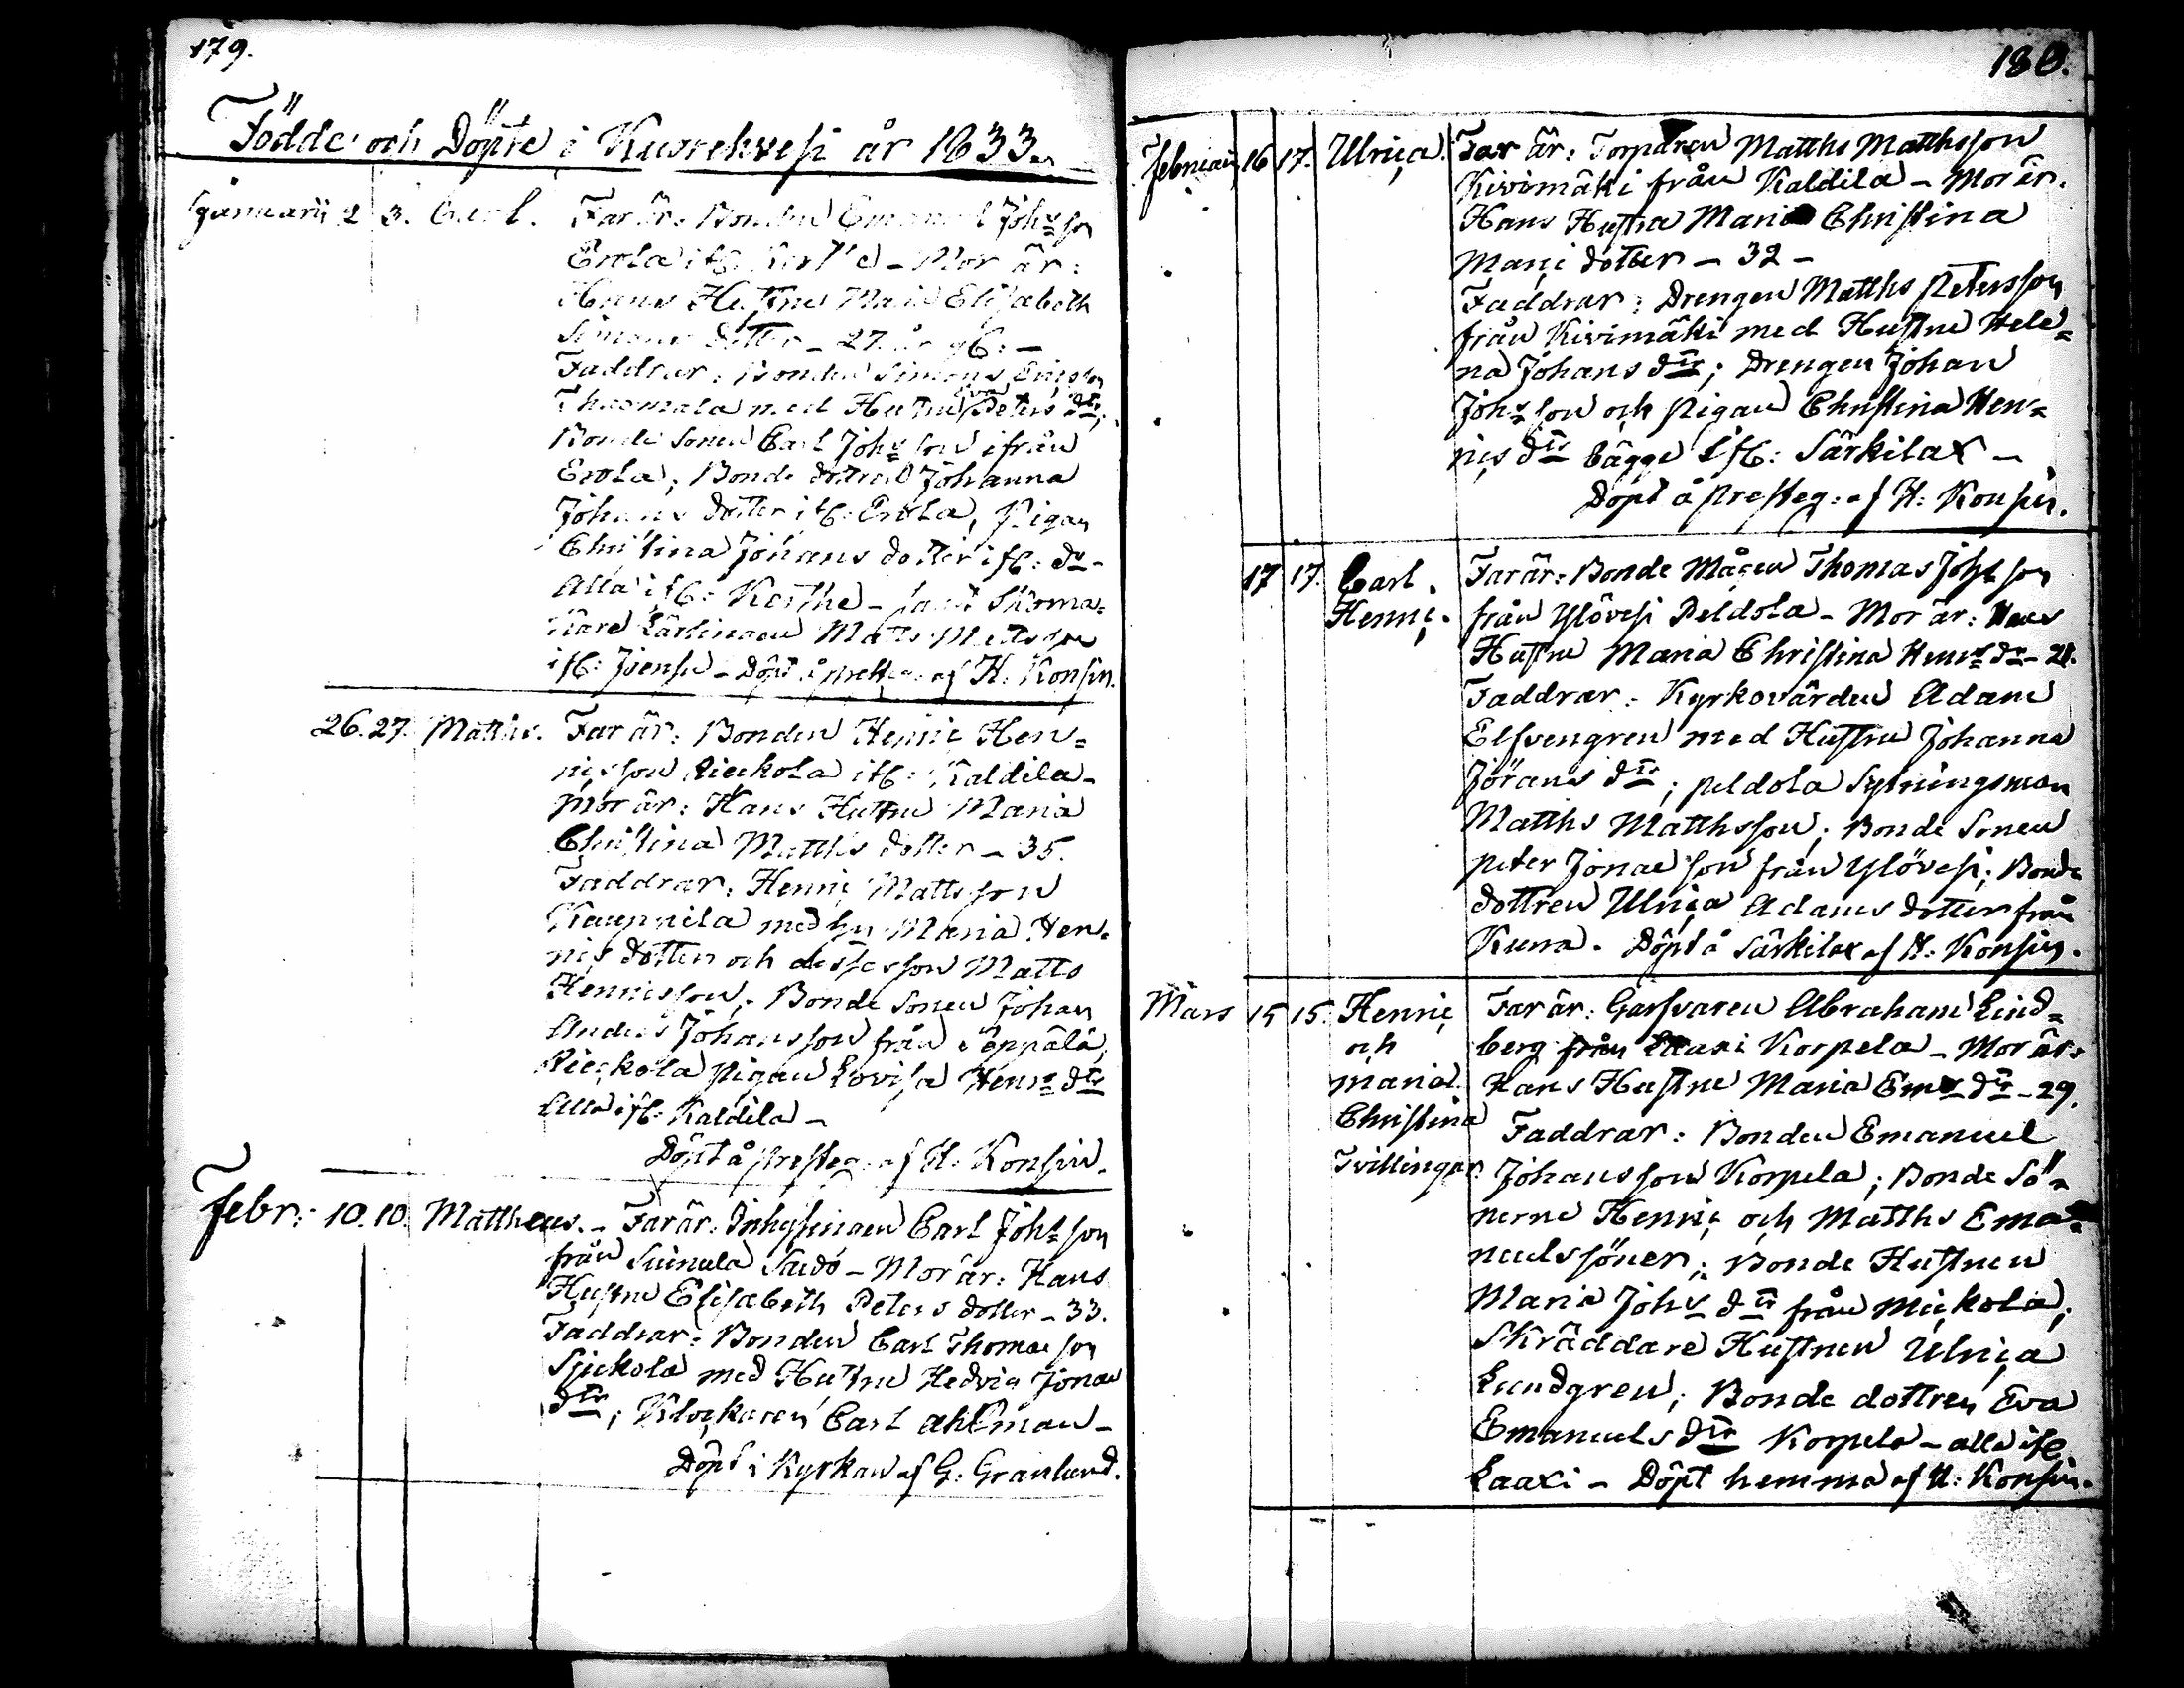 179.
Födde och Döpte i Kusrehvesi år 1833.
Januarii 2 3. Carl. Far är: Bonden Emanuel Johs son
Erola ifr: - Mor är:
Hans Hustru Maria Elisabeth
Simons Dotter - 27. år gl: -
Faddrar: Bonden Simons Ericsson
Thuomala med Hustru Eva Peters dtr;
Bonde Sonen Carl Johs son ifrån
Erola; Bonde dottren Johanna
Johans dotter ifr: Erola, Pigan
Christina Johans dotter ifr: do -
Alla ifr: - samt Skoma=
kare Lärlingen Matts Mattsson
ifr: Joensu - Döpt å presteg: af H: Konsin.
26. 27. Matths. Far är: Bonden Henric Hen=
ricsson Rieckola ifr: Kaldila -
Mor är: Hans Hustru Maria
Christina Matths dotter - 35.
Faddrar: Henric Mattsson
Kauppila med hu Maria Hen=
rics dotter och dessesson Matts
Henricsson; Bonde Sonen Johan
Anders Johansson från Seppälä;
Rieckola pigan Lovisa Henrs dtr
Alla ifr: Kaldila -
Döpt å presteg: af H: Konsin.
Febr: 10. 10. Mattheus. - Far är: Inhysingen Carl Johs son
från - Mor är: Hans
Hustru Elisabeth Peters dotter - 33.
Faddrar: Bonden Carl Thomae son
med Hustru Hedvig Jonae
dtr; Klockaren Carl Ahlman -
Döpt i Kyrkan af G: Granlund.
180.
Februarii 16 17. Ulrica. Far är: Torparen Matths Matthsson
Kivimäki från Kaldila - Mor är.
Hans Hustru Maria Christina
Marci dotter - 32 -
Faddrar: Drengen Matths Petersson
från Kivimäki med Hustru Hele=
na Johans dtr; Drengen Johan
Johs son och Pigan Christina Hen=
rics dtr bägge ifr: Särkilax -
Döpt å Presteg: af H: Konsin.
17 17. Carl Henric. Far är: Bonde Mågen Thomas Johs son
från Ylövesi Peldola - Mor är: Hans
Hustru Maria Christina Henrs dr - 21.
Faddrar: Kyrkovärden Adam
Elfvengren med Hustru Johanna
Jörans dtr; Peldola Sytningsman
Matths Matthsson; Bonde Sonen
Peter Jonae son från Ylövesi; Bonde
dottren Ulrica Adams dotter från
Kurra. Döpt å Särkilax af H: Konsin.
Mars 15 15. Henric Far är: Garfvaren Abraham Lind=
och berg från Laaxi Korpela - Mor är:
Maria Hans Hustru Maria Ems dtr - 29.
Christina Faddrar: Bonden Emanuel
Tvillingar. Johansson Korpela; Bonde Sö=
nerne Henric och Matths Ema=
nuelssöner; Bonde Hustrun
Maria Johs dtr från Mickola;
Skräddare Hustrun Ulrica
Lundgren; Bonde dottren Eva
Emanuels dtr Korpela - alla ifr
Laaxi - Döpt hemma af H: Konsin.